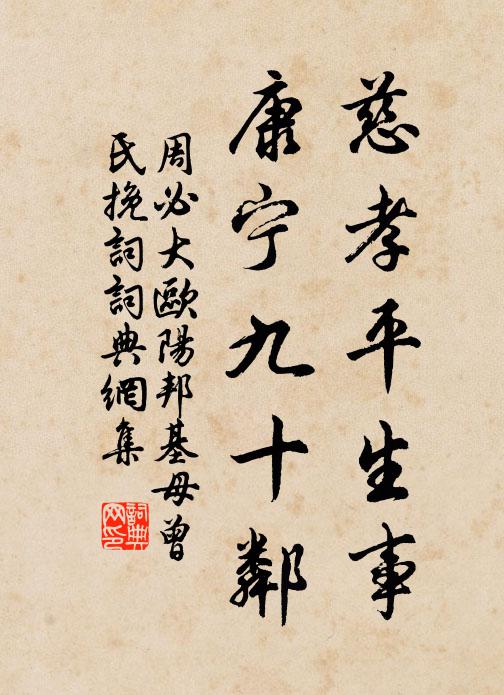 慈孝平生事
康宁九十鄰
周必大歐陽邦基母曾
民挽詞詞典網集
詞典
网印